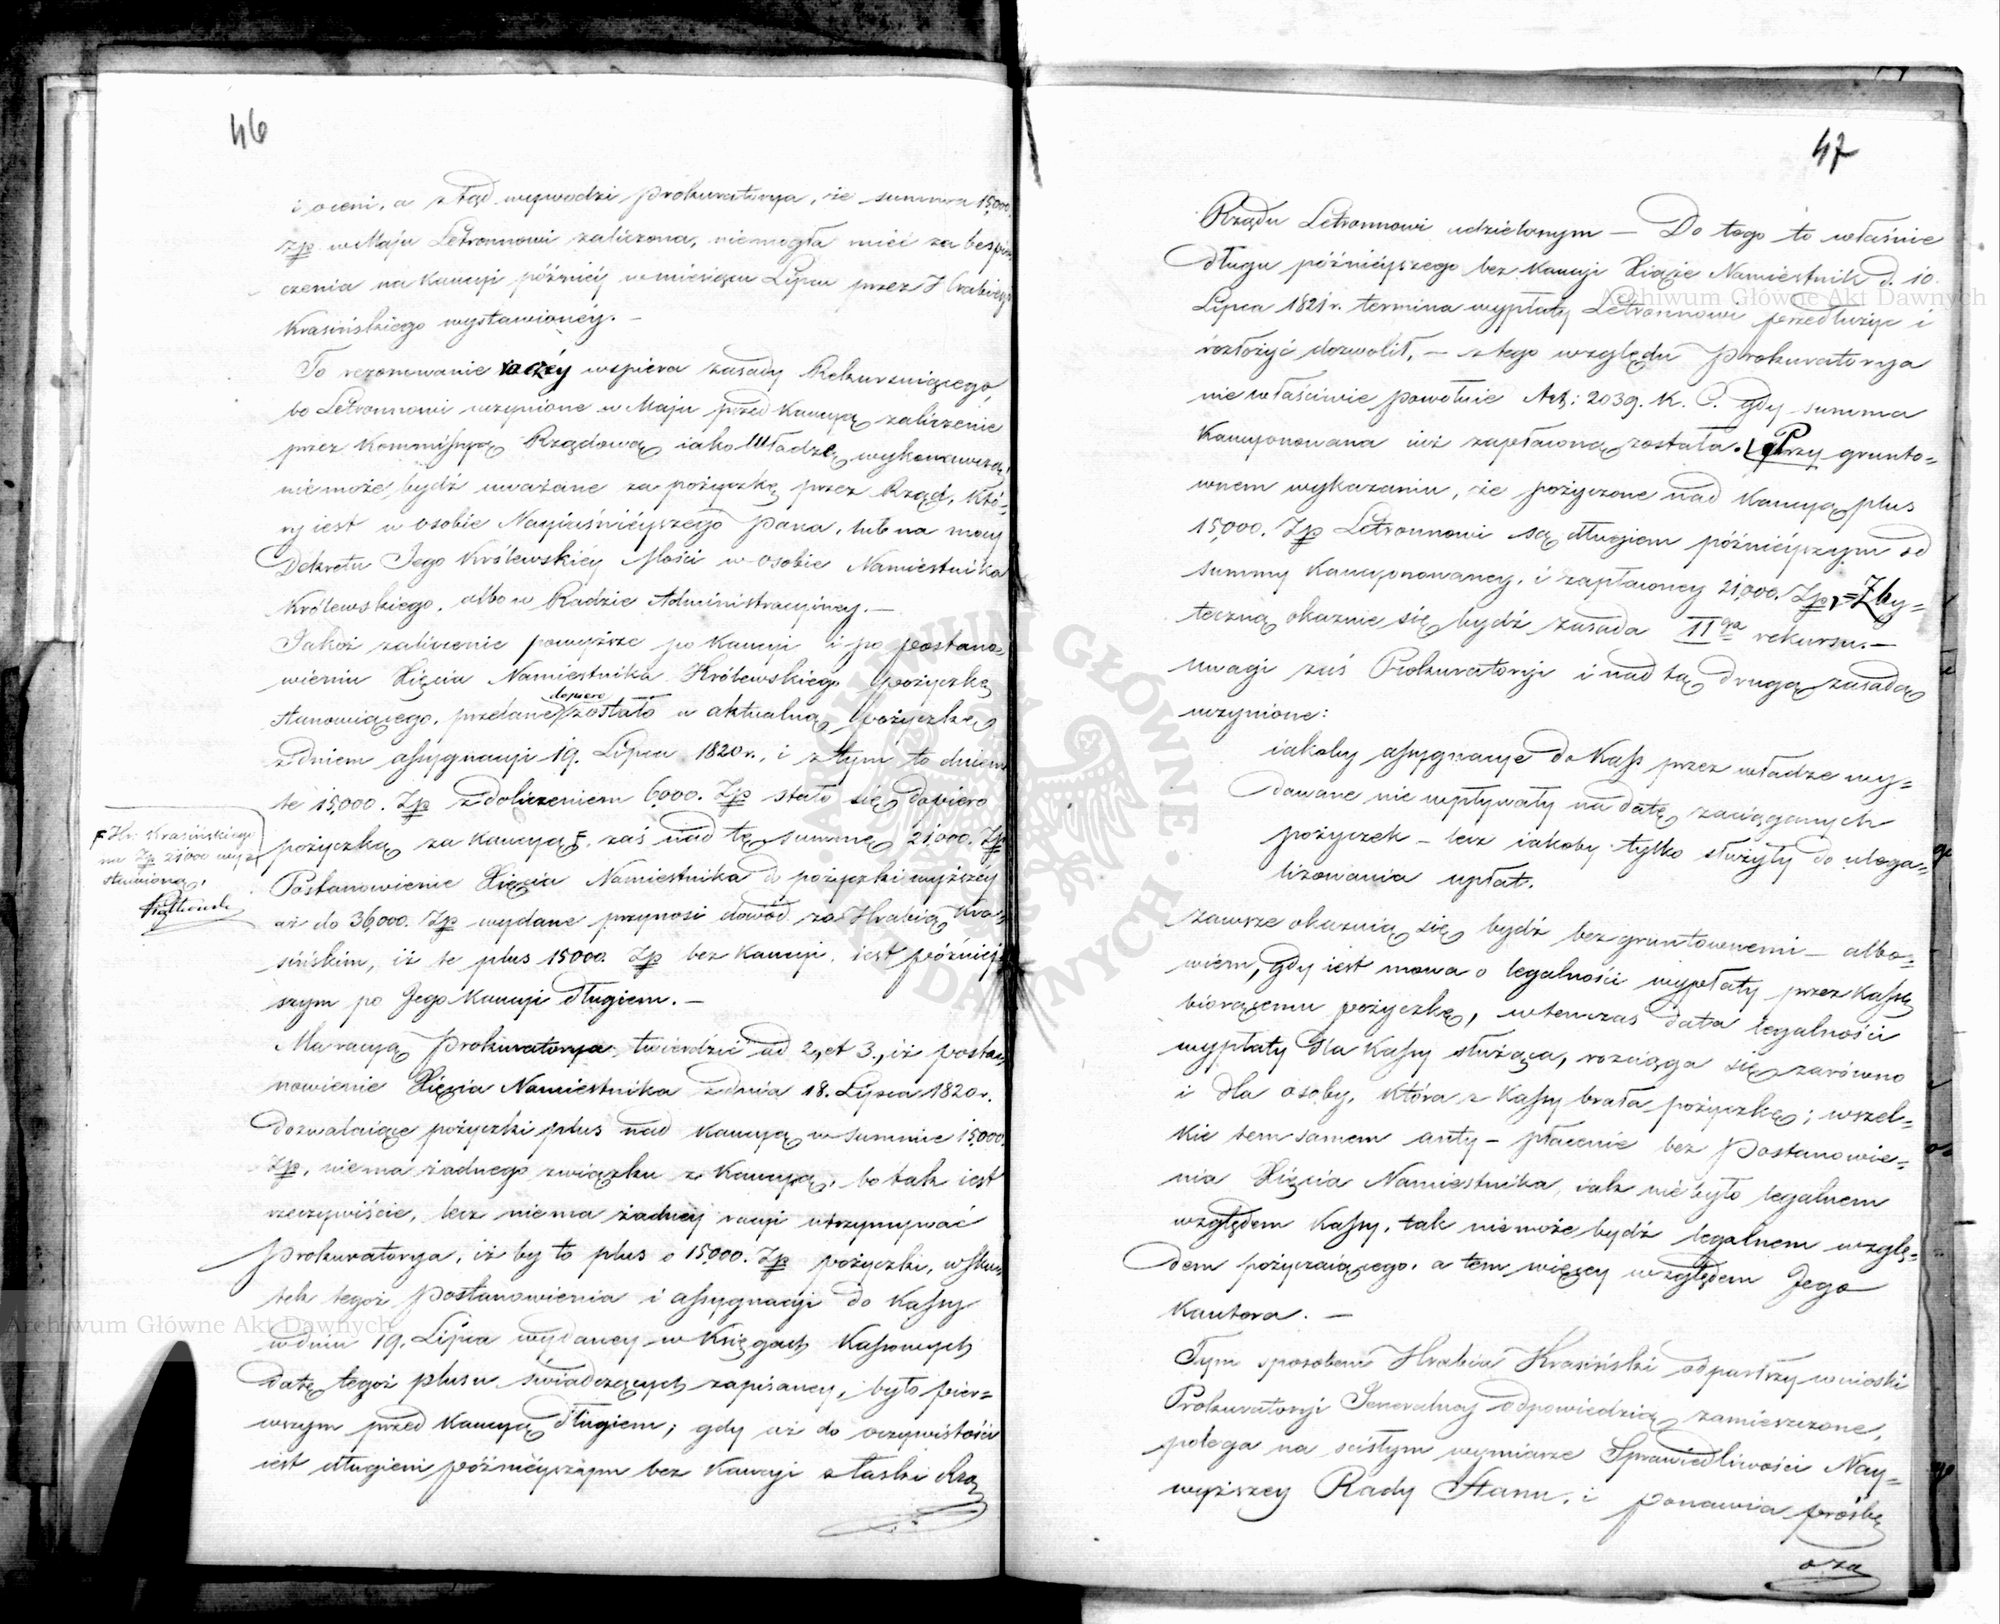 46
i oceni, a ztąd wywodzi Prokuratorya, że summa 15,000.
Zł. w Maju Letronnowi zaliczona, niemogła mieć za bespie=
czenia na kaucyi późniéy w miesiącu Lipcu przez Hrabiego
Krasińskiego wystawionéy. —
To rezonowanie raczéy wspiera zasady Rekursuiącego,
bo Letronnowi uczynione w Maju przed kaucyą zaliczenie
przez Kommissyą Rządową iako Władzę wykonawczą
niemoże bydź uważane za pożyczkę przez Rząd, Któ=
ry iest w osobie Nayiaśnieyszego Pana, lub na mocy
Dekretu Jego Królewskiéy Mości w osobie Namiestnika
Królewskiego, albo w Radzie Administracyiney. —
Jakoż zaliczenie powyższe po kaucyi i po postano=
wieniu Xięcia Namiestnika Królewskiego pożyczkę
stanowiącego, przelane dopiero zostało w aktualną pożyczkę
z dniem assygnacyi 19. Lipca 1820 r., i z tym to dniem
te 15,000. Zł. z doliczeniem 6,000. Zł. stało się dopiero
pożyczką za kaucyą F, zaś nad tę summę 21,000. Zł.
F Hr. Krasińskiego
na Zł. 21000 wy=
stawioną,
Postanowienie Xięcia Namiestnika do pożyczki wyższéy
aż do 36,000. Zł. wydane przynosi dowód za Hrabią Kra=
sińskim, iż te plus 15000. Zł. bez kaucyi, iest późniey=
szym po Jego kaucyi długiem. —
Ma racyą Prokuratorya twierdzić ad 2, et 3., iż posta=
nowienie Xięcia Namiestnika z dnia 18. Lipca 1820 r.
dozwalaiące pożyczki plus nad kaucyą w summie 15,000
Zł., niema żadnego związku z kaucyą, bo tak iest
rzeczywiście, lecz niema żadnéy racyi utrzymywać
Prokuratorya, iż by to plus o 15,000. Zł. pożyczki, w sku=
tek tegoż Postanowienia i assygnacyi do Kassy
w dniu 19. Lipca wydaney w Księgach Kassowych
datę tegoż plusu świadczących zapisaney, było pier=
wszym przed kaucyą długiem; gdy aż do oczywistości
iest długiem późnieyszym bez kaucyi z łaski Rzą
47
Rządu Letronnowi udzielonym — Do tego to właśnie
długu późnieyszego bez kaucyi Xiąże Namiestnik d. 10.
Lipca 1821 r. termina wypłaty Letronnowi przedłużyć i
rozłożyć dozwolił, — z tego względu Prokuratorya
niewłaściwie powołuie Art: 2039. K. C. gdy summa
kaucyonowana iuż zapłaconą została. Przy grunto=
wnem wykazaniu, że pożyczone nad kaucyą plus
15,000. Zł. Letronnowi są długiem późnieyszym od
summy kaucyonowaney, i zapłaconey 21,000. Zł., = Zby=
teczną okazuie się bydź zasada IIga rekursu. —
uwagi zaś Prokuratoryi i nad tą drugą zasadą
uczynione:
iakoby assygnacye do Kass przez władze wy=
dawane nie wpływały na datę zaciąganych
pożyczek — lecz iakoby tylko służyły do ulega=
lizowania wpłat.
zawsze okazuią się bydź bezgruntownemi — albo=
wiem, gdy iest mowa o legalności wypłaty przez Kassę
biorącemu pożyczkę, wtenczas data legalności
wypłaty dla Kassy służąca, rozciąga się zarówno
i dla osoby, która z Kassy brała pożyczkę; wszel=
kie tem samem anty-płacenie bez Postanowie=
nia Xięcia Namiestnika, iak nie było legalnem
względem Kassy, tak niemoże bydź legalnem wzglę=
dem pożyczaiącego, a tem więcey względem Jego
kautora. —
Tym sposobem Hrabia Krasiński odparłszy wnioski
Prokuratoryi Jeneralnéy odpowiedzią zamieszczone,
polega na ścisłym wymiarze Sprawiedliwości Nay=
wyższey Rady Stanu, i ponawia prośbę
o za
Archiwum Główne Akt Dawnych
Archiwum Główne Akt Dawnych
ARCHIWUM GŁÓWNE AKT DAWNYCH